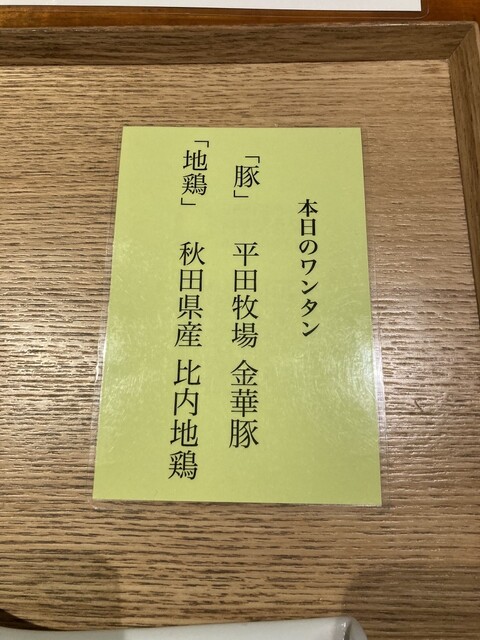 本日のワンタン
「豚」 平田牧場 金華豚
「地鶏」 秋田県産 比内地鶏